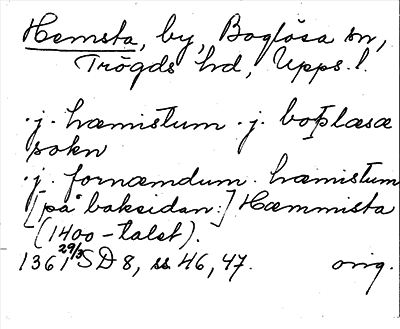 Hemsta, by, Boglösa sn,
Trögds hd, Upps. l.
·j· hæmistum ·j· boþlæsæ
sokn
·j· fornæmdum hæmistum
[på baksidan:] Hæmmista
(1400-talet).
1361 29/3 SD 8, ss 46, 47. orig.